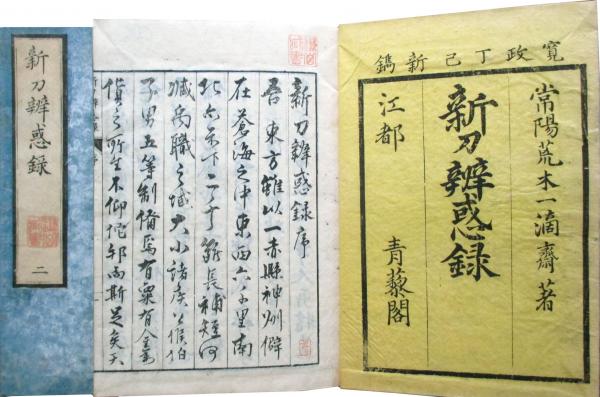 寛政丁巳新鐫
常陽荒木一滴齋著
新刀辨惑録
江都 青藜閣
新刀辨惑録序
吾 東方雖以一赤縣神州僻
在蒼海之中東西六千里南
北亦不下二千 長補短何
減禹職之域大小諸矦 侯伯
子男五等制備焉有粟有金
貨之所生不仰陀邦而斯足矣天
新刀辨惑録
二